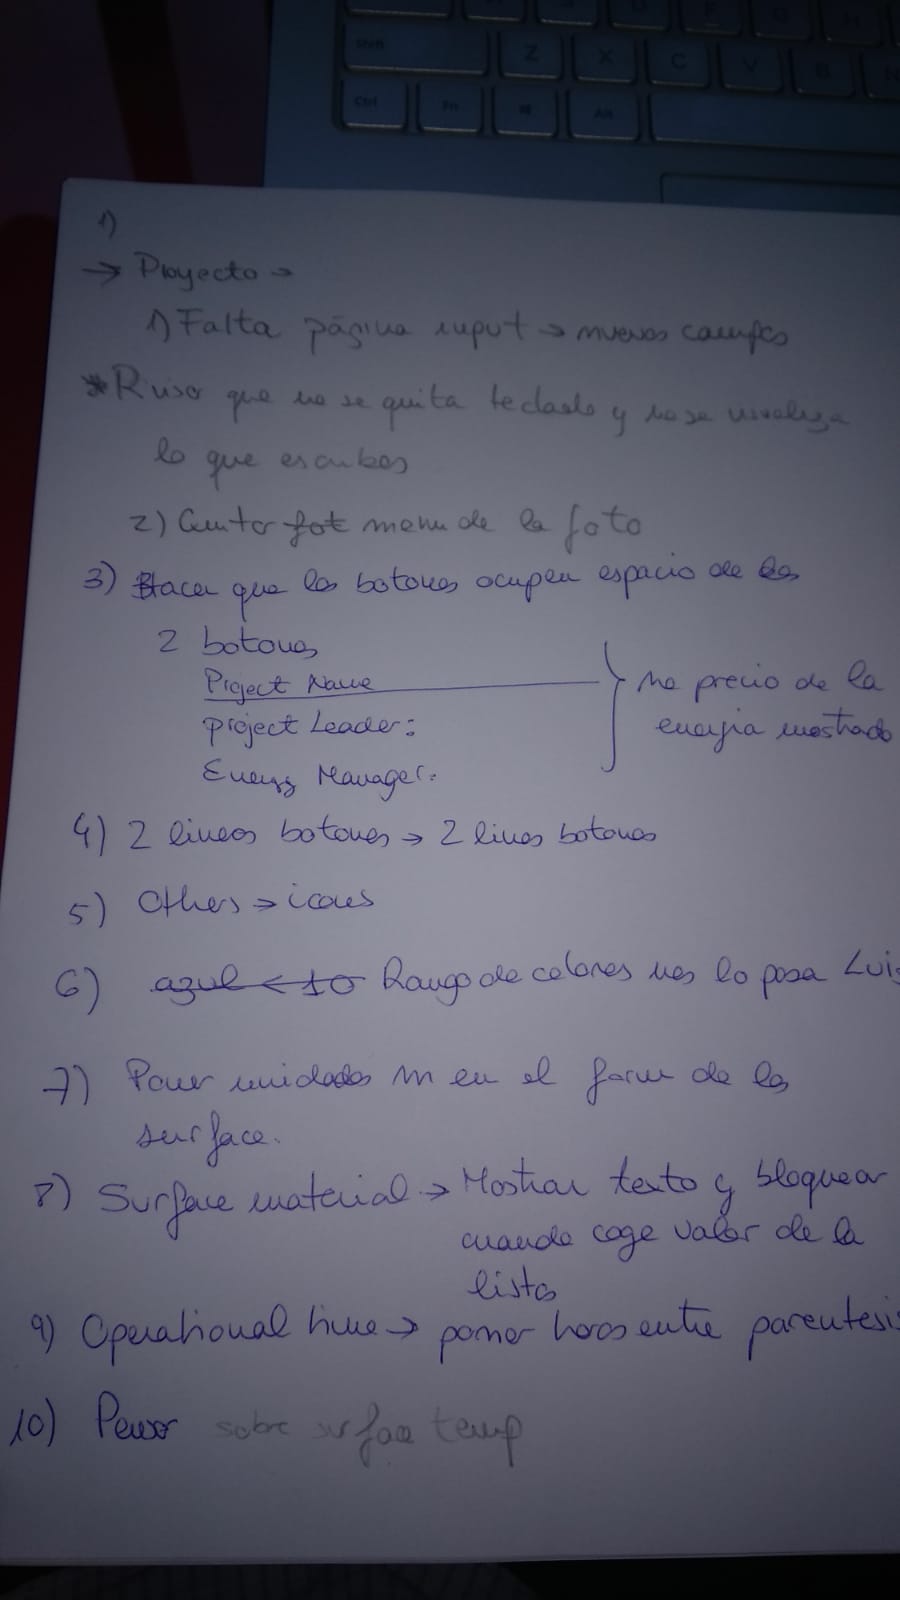 Shift Z X C V B
Ctrl Fn Alt
1)
→ Proyecto →
1) Falta página input → nuevos campos
* Ruso que no se quita teclado y no se visualiza
lo que escribes
2) Quitar fot menu de la foto
3) Hacer que los botones ocupen espacio de los
2 botones
Project Name
Project Leader:
Energy Manager:
no precio de la
energia mostrado
4) 2 lineas botones → 2 lines botones
5) Others → icons
6) azul < 10 Rango de colores nos lo pasa Luis
7) Poner unidades m en el form de la
surface.
8) Surface material → Mostrar texto y bloquear
cuando coge valor de la
lista
9) Operational time → poner horas entre parentesis
10) Pensar sobre surface temp